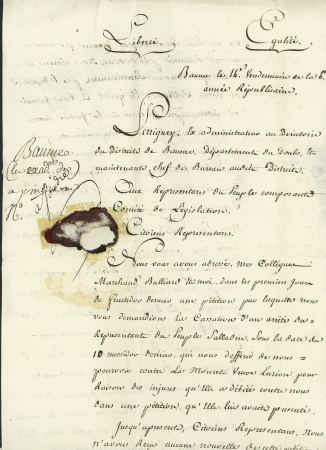 Liberté. Egalité.
Baume le 14e. Vendemiaire de la
année Républicaine.
Perriguey, Ex administrateur au directoire
du district de Baume, département du doubs, et
maintenant chef de Bureau audit District.
Aux Représentans du Peuple composant le
Comité de Législation.
Citoyens Représentans.
Baume
Nous vous avons adressé, mes Collègues
Marchand, Bulliard et moi, dans les premiers Jours
de fructidor dernier une pétition par laquelle nous
vous demandions la Cassation d'un arrêté du
Représentant du Peuple Sous la date du
10 messidor dernier, qui nous deffend de nous
pourvoir contre La Veuve pour
Raison des injures qu'Elle a débité contre nous
dans une pétition qu'Elle lui avait presenté.
Jusqu'apresent, Citoiens Représentans, Nous
n'avons Reçu aucune nouvelle de cette pétition